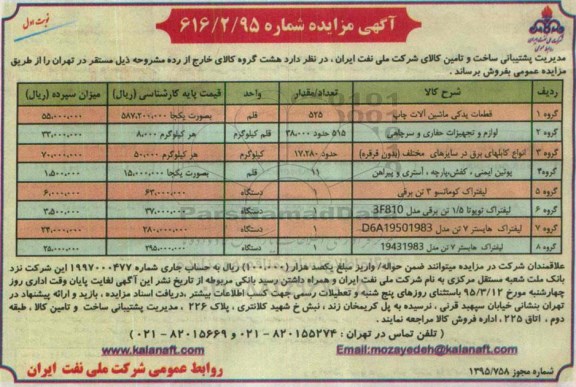 نوبت اول
آگهی مزایده شماره ۶۱۶/۲/۹۵
مدیریت پشتیبانی ساخت و تامین کالای شرکت ملی نفت ایران ، در نظر دارد هشت گروه کالای خارج از رده مشروحه ذیل مستقر در تهران را از طریق
مزایده عمومی بفروش برساند .
ردیف شرح کالا تعداد/مقدار واحد قیمت پایه کارشناسی (ریال) میزان سپرده (ریال)
گروه ۱ قطعات یدکی ماشین آلات چاپ ۵۲۵ قلم بصورت یکجا ۵۸۷,۲۰۰,۰۰۰ ۵۵,۰۰۰,۰۰۰
گروه ۲ لوازم و تجهیزات حفاری و سرچاهی ۵۱۵ حدود ۳۸,۰۰۰ قلم کیلوگرم هر کیلوگرم ۸,۰۰۰ ۳۳,۰۰۰,۰۰۰
گروه ۳ انواع کابلهای برق در سایزهای مختلف (بدون قرقره) حدود ۱۷,۲۸۰ کیلوگرم هر کیلوگرم ۵۰,۰۰۰ ۷۰,۰۰۰,۰۰۰
گروه۴ پوتین ایمنی ، کفش،پارچه ، آستری و پیراهن ۱۱ قلم بصورت یکجا ۱۵,۰۰۰,۰۰۰ ۱,۵۰۰,۰۰۰
گروه ۵ لیفتراک کوماتسو ۳ تن برقی ۱ دستگاه ۶۳,۰۰۰,۰۰۰ ۶,۰۰۰,۰۰۰
گروه ۶ لیفتراک تویوتا ۱/۵ تن برقی مدل 3F810 ۱ دستگاه ۳۷,۰۰۰,۰۰۰ ۳,۵۰۰,۰۰۰
گروه ۷ لیفتراک هایستر ۷ تن مدل D6A19501983 ۱ دستگاه ۲۸۰,۰۰۰,۰۰۰ ۲۴,۰۰۰,۰۰۰
گروه ۸ لیفتراک هایستر ۷ تن مدل 19431983 ۱ دستگاه ۲۹۵,۰۰۰,۰۰۰ ۲۵,۰۰۰,۰۰۰
علاقمندان شرکت در مزایده میتوانند ضمن حواله/ واریز مبلغ یکصد هزار (۱۰۰,۰۰۰) ریال به حساب جاری شماره ۱۹۹۷۰۰۰۴۷۷ این شرکت نزد
بانک ملت شعبه مستقل مرکزی به نام شرکت ملی نفت ایران و همراه داشتن رسید بانکی مربوطه از تاریخ نشر این آگهی لغایت پایان وقت اداری روز
چهارشنبه مورخ ۹۵/۳/۱۲ باستثنای روزهای پنج شنبه و تعطیلات رسمی جهت کسب اطلاعات بیشتر ،دریافت اسناد مزایده ، بازدید و ارائه پیشنهاد در
تهران بنشانی خیابان سپهبد قرنی ، نرسیده به پل کریمخان زند ، نبش خ شهید کلانتری ، پلاک ۲۲۶ ، مدیریت پشتیبانی ساخت و تامین کالا ، طبقه
دوم ، اتاق ۲۲۵ ، اداره فروش کالا مراجعه نمایند .
( تلفن تماس در تهران : ۸۲۰۱۵۵۲۷۴ - ۰۲۱ و ۸۲۰۱۵۶۶۹ - ۰۲۱ )
www.kalanaft.com Email:mozayedeh@kalanaft.com
شماره مجوز ۱۳۹۵/۷۵۸ روابط عمومی شرکت ملی نفت ایران